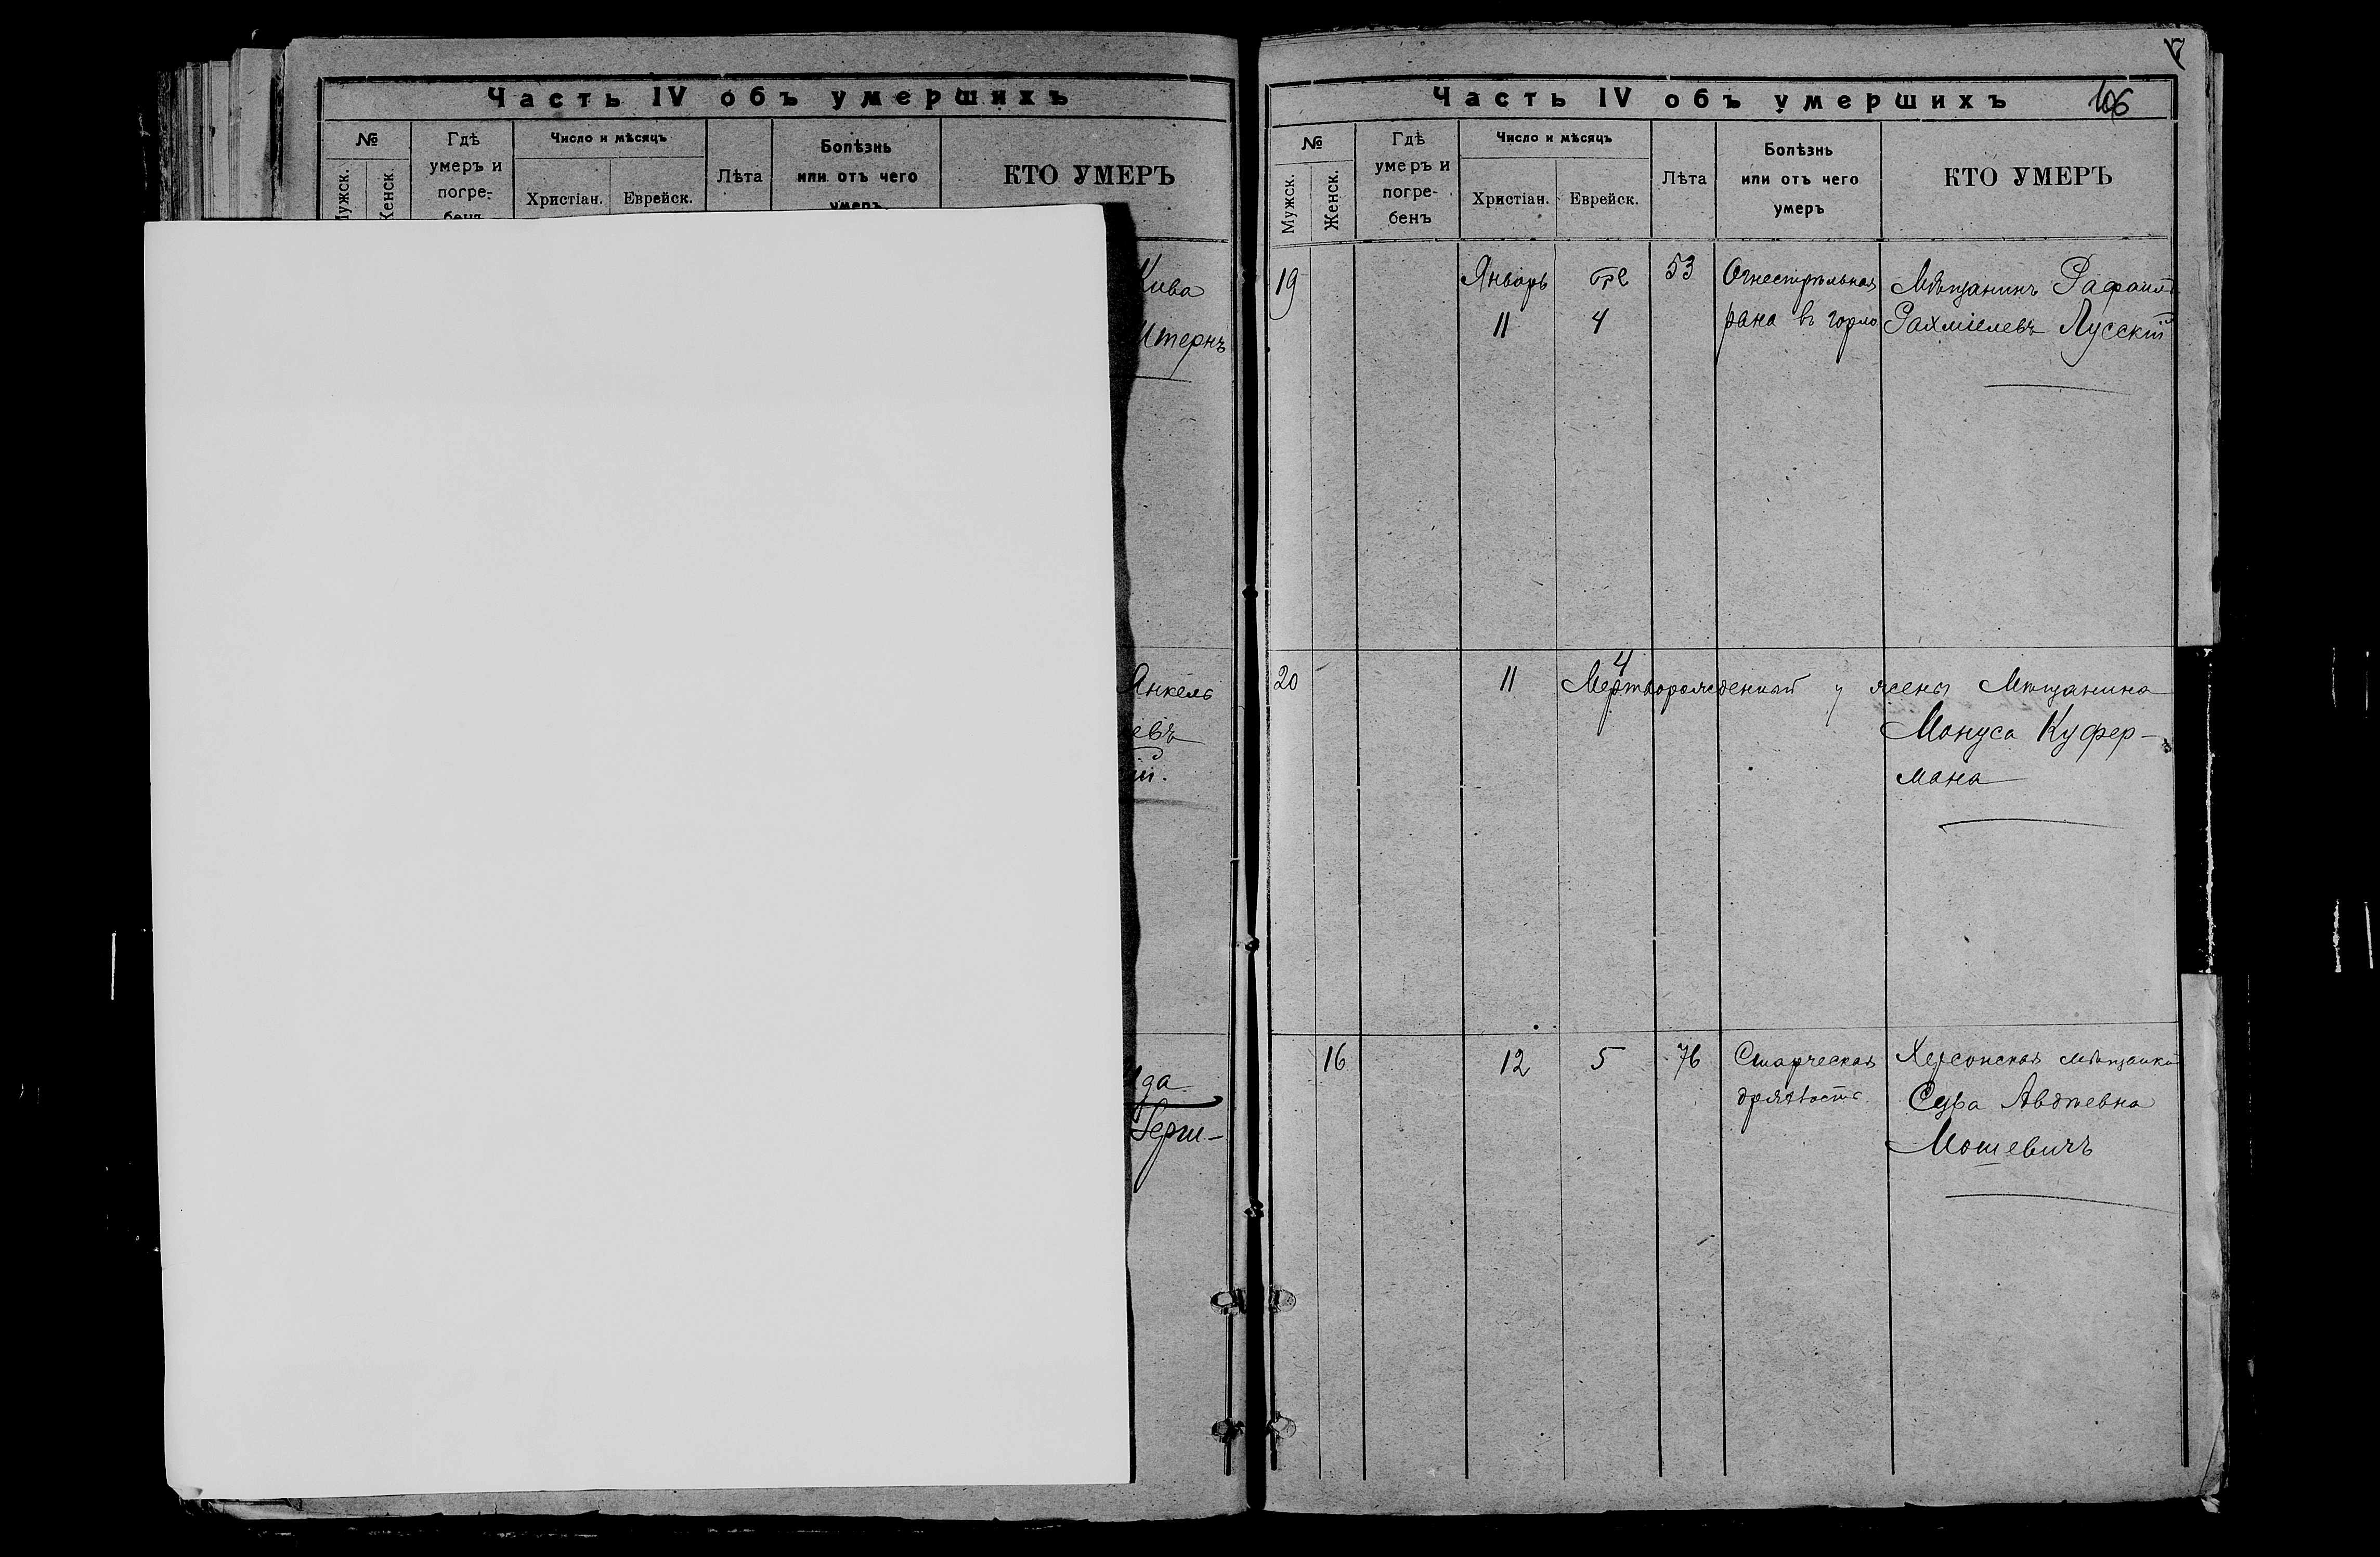 Часть IV объ умершихъ
№
Гдѣ
умеръ и
погре-
бенъ
Число и мѣсяцъ
Христіан.
Еврейск.
Лѣта
Болѣзнь
или отъ чего
умеръ
КТО УМЕРЪ
Мужск.
Женск.
Кива
Штернъ
Янкель
евъ
ій.
Герш-
7
Часть IV объ умершихъ
106
№
Мужск.
Женск.
Гдѣ
умеръ и
погре-
бенъ
Число и мѣсяцъ
Христіан.
Еврейск.
Лѣта
Болѣзнь
или отъ чего
умеръ
КТО УМЕРЪ
19
Январь
11
4
53
Огнестрѣльная
рана въ горло
Мѣщанинъ Рафаилъ
Рахміелевъ Лусскій
20
11
4
Мертворожденный у жены Мѣщанина
Мануса Куфер-
мана
16
12
5
76
Старческая
дряхлость
Херсонская мѣщанка
Сура Авдѣевна
Мошевичъ